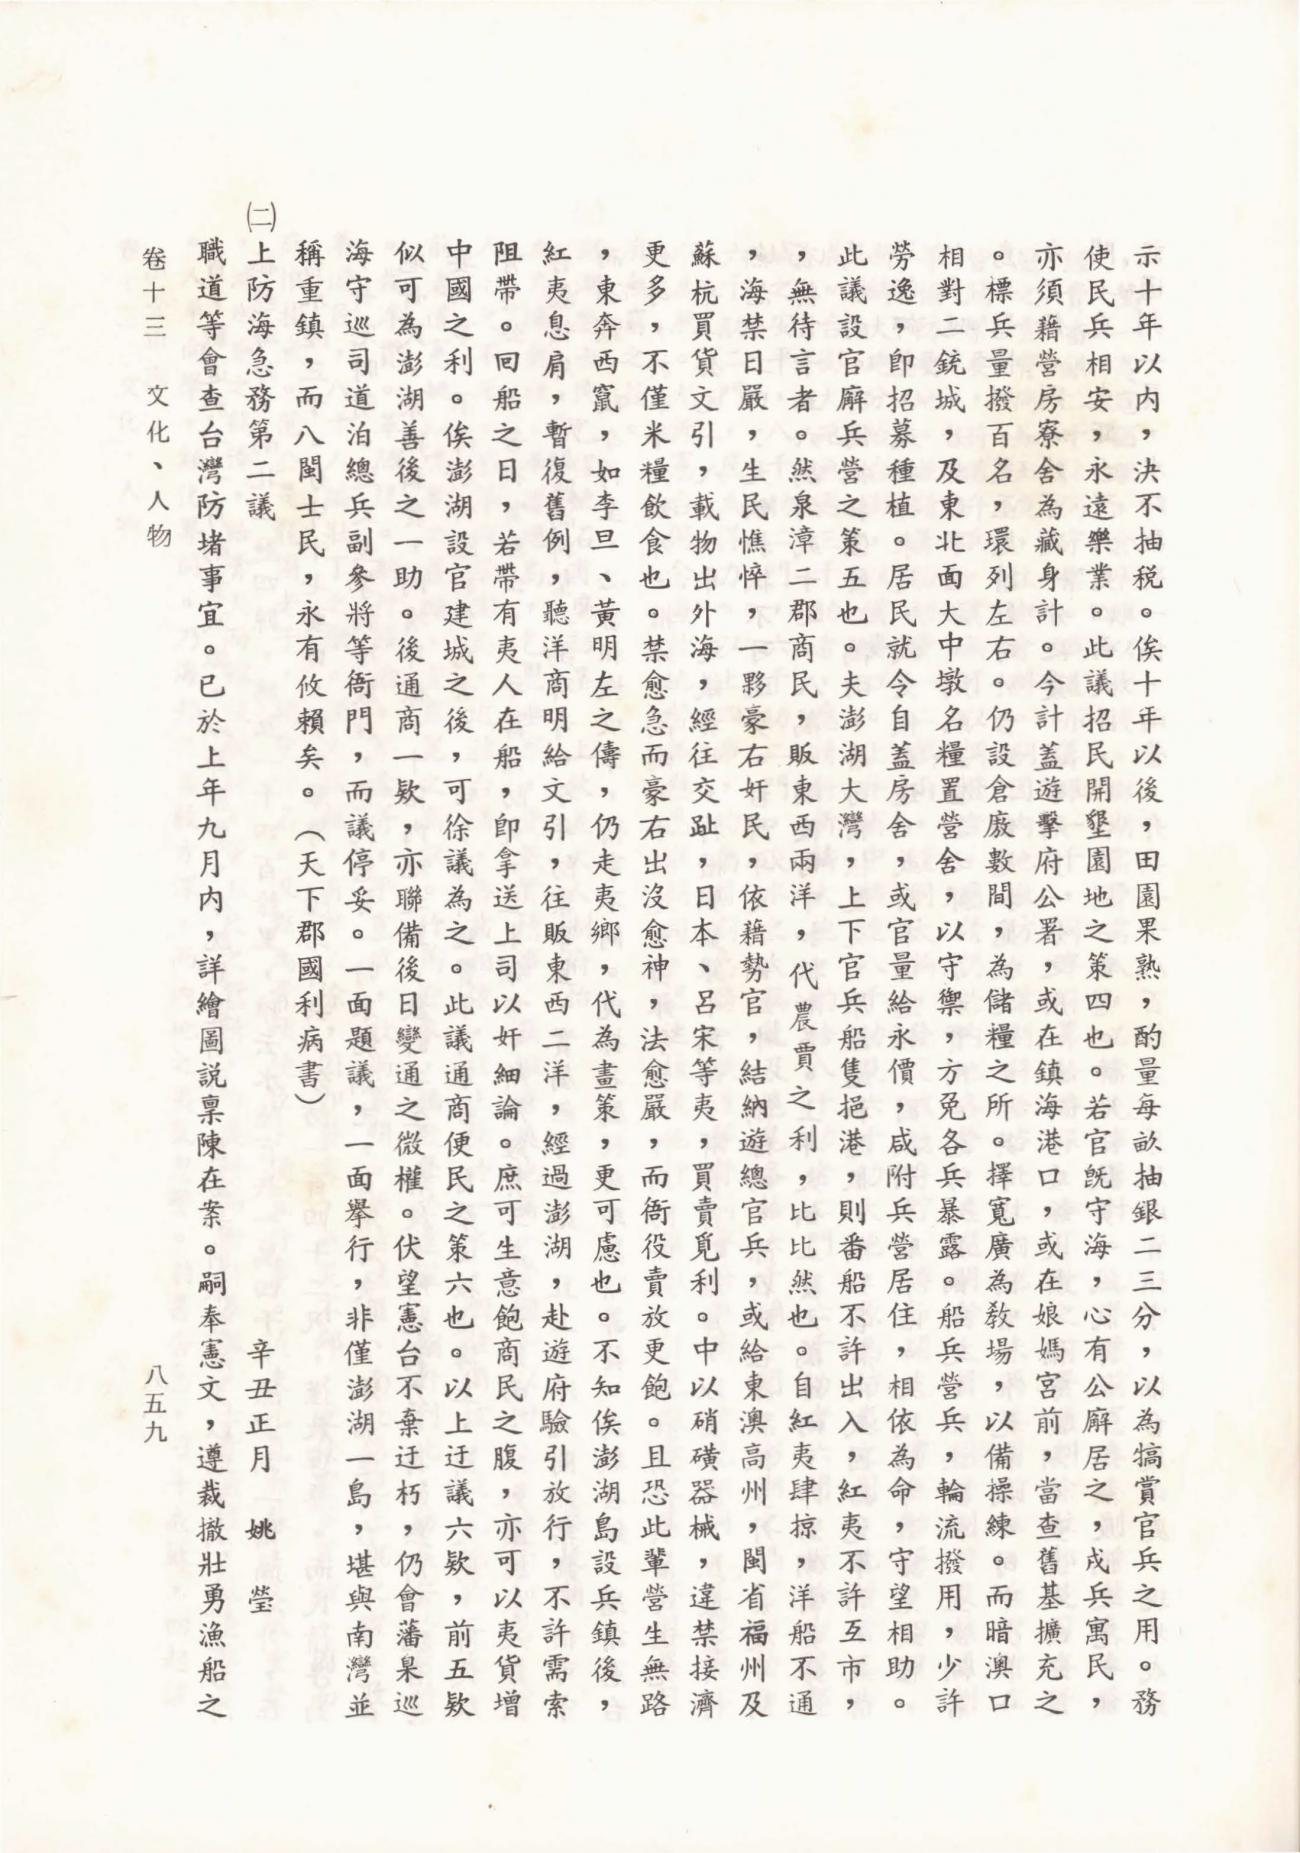 示十年以內，決不抽税。俟十年以後，田園果熟，酌量每畝抽銀二三分，以為犒賞官兵之用。務
使民兵相安，永遠樂業。此議招民開墾園地之策四也。若官旣守海，心有公廨居之，戍兵寓民，
亦須藉營房寮舍為藏身計。今計蓋遊擊府公署，或在鎮海港口，或在娘媽宮前，當查舊基擴充之
。標兵量撥百名，環列左右。仍設倉廒數間，為儲糧之所。擇寬廣為教場，以備操練。而暗澳口
相對二銃城，及東北面大中墩名糧置營舍，以守禦，方免各兵暴露。船兵營兵，輪流撥用，少許
勞逸，卽招募種植。居民就令自蓋房舍，或官量給永價，咸附兵營居住，相依為命，守望相助。
此議設官廨兵營之策五也。夫澎湖大灣，上下官兵船隻挹港，則番船不許出入，紅夷不許互市，
，無待言者。然泉漳二郡商民，販東西兩洋，代農賈之利，比比然也。自紅夷肆掠，洋船不通
，海禁日嚴，生民憔悴，一夥豪右奸民，依藉勢官，結納遊總官兵，或給東澳高州，閩省福州及
蘇杭買貨文引，載物出外海，經往交趾，日本、呂宋等夷，買賣覓利。中以硝磺器械，違禁接濟
更多，不僅米糧飲食也。禁愈急而豪右出沒愈神，法愈嚴，而衙役賣放更飽。且恐此輩營生無路
，東奔西竄，如李旦、黃明左之儔，仍走夷鄉，代為畫策，更可慮也。不知俟澎湖島設兵鎮後，
紅夷息肩，暫復舊例，聽洋商明給文引，往販東西二洋，經過澎湖，赴遊府驗引放行，不許需索
阻帶。回船之日，若帶有夷人在船，卽拿送上司以奸細論。庶可生意飽商民之腹，亦可以夷貨增
中國之利。俟澎湖設官建城之後，可徐議為之。此議通商便民之策六也。以上迂議六欵，前五欵
似可為澎湖善後之一助。後通商一欵，亦聯備後日變通之微權。伏望憲台不棄迂朽，仍會藩臬巡
海守巡司道泊總兵副參將等衙門，而議停妥。一面題議，一面擧行，非僅澎湖一島，堪與南灣並
稱重鎮，而八閩士民，永有攸賴矣。（天下郡國利病書）
㈡上防海急務第二議　辛丑正月　姚　瑩
職道等會查台灣防堵事宜。已於上年九月內，詳繪圖説稟陳在案。嗣奉憲文，遵裁撤壯勇漁船之
卷十三　文化、人物　八五九